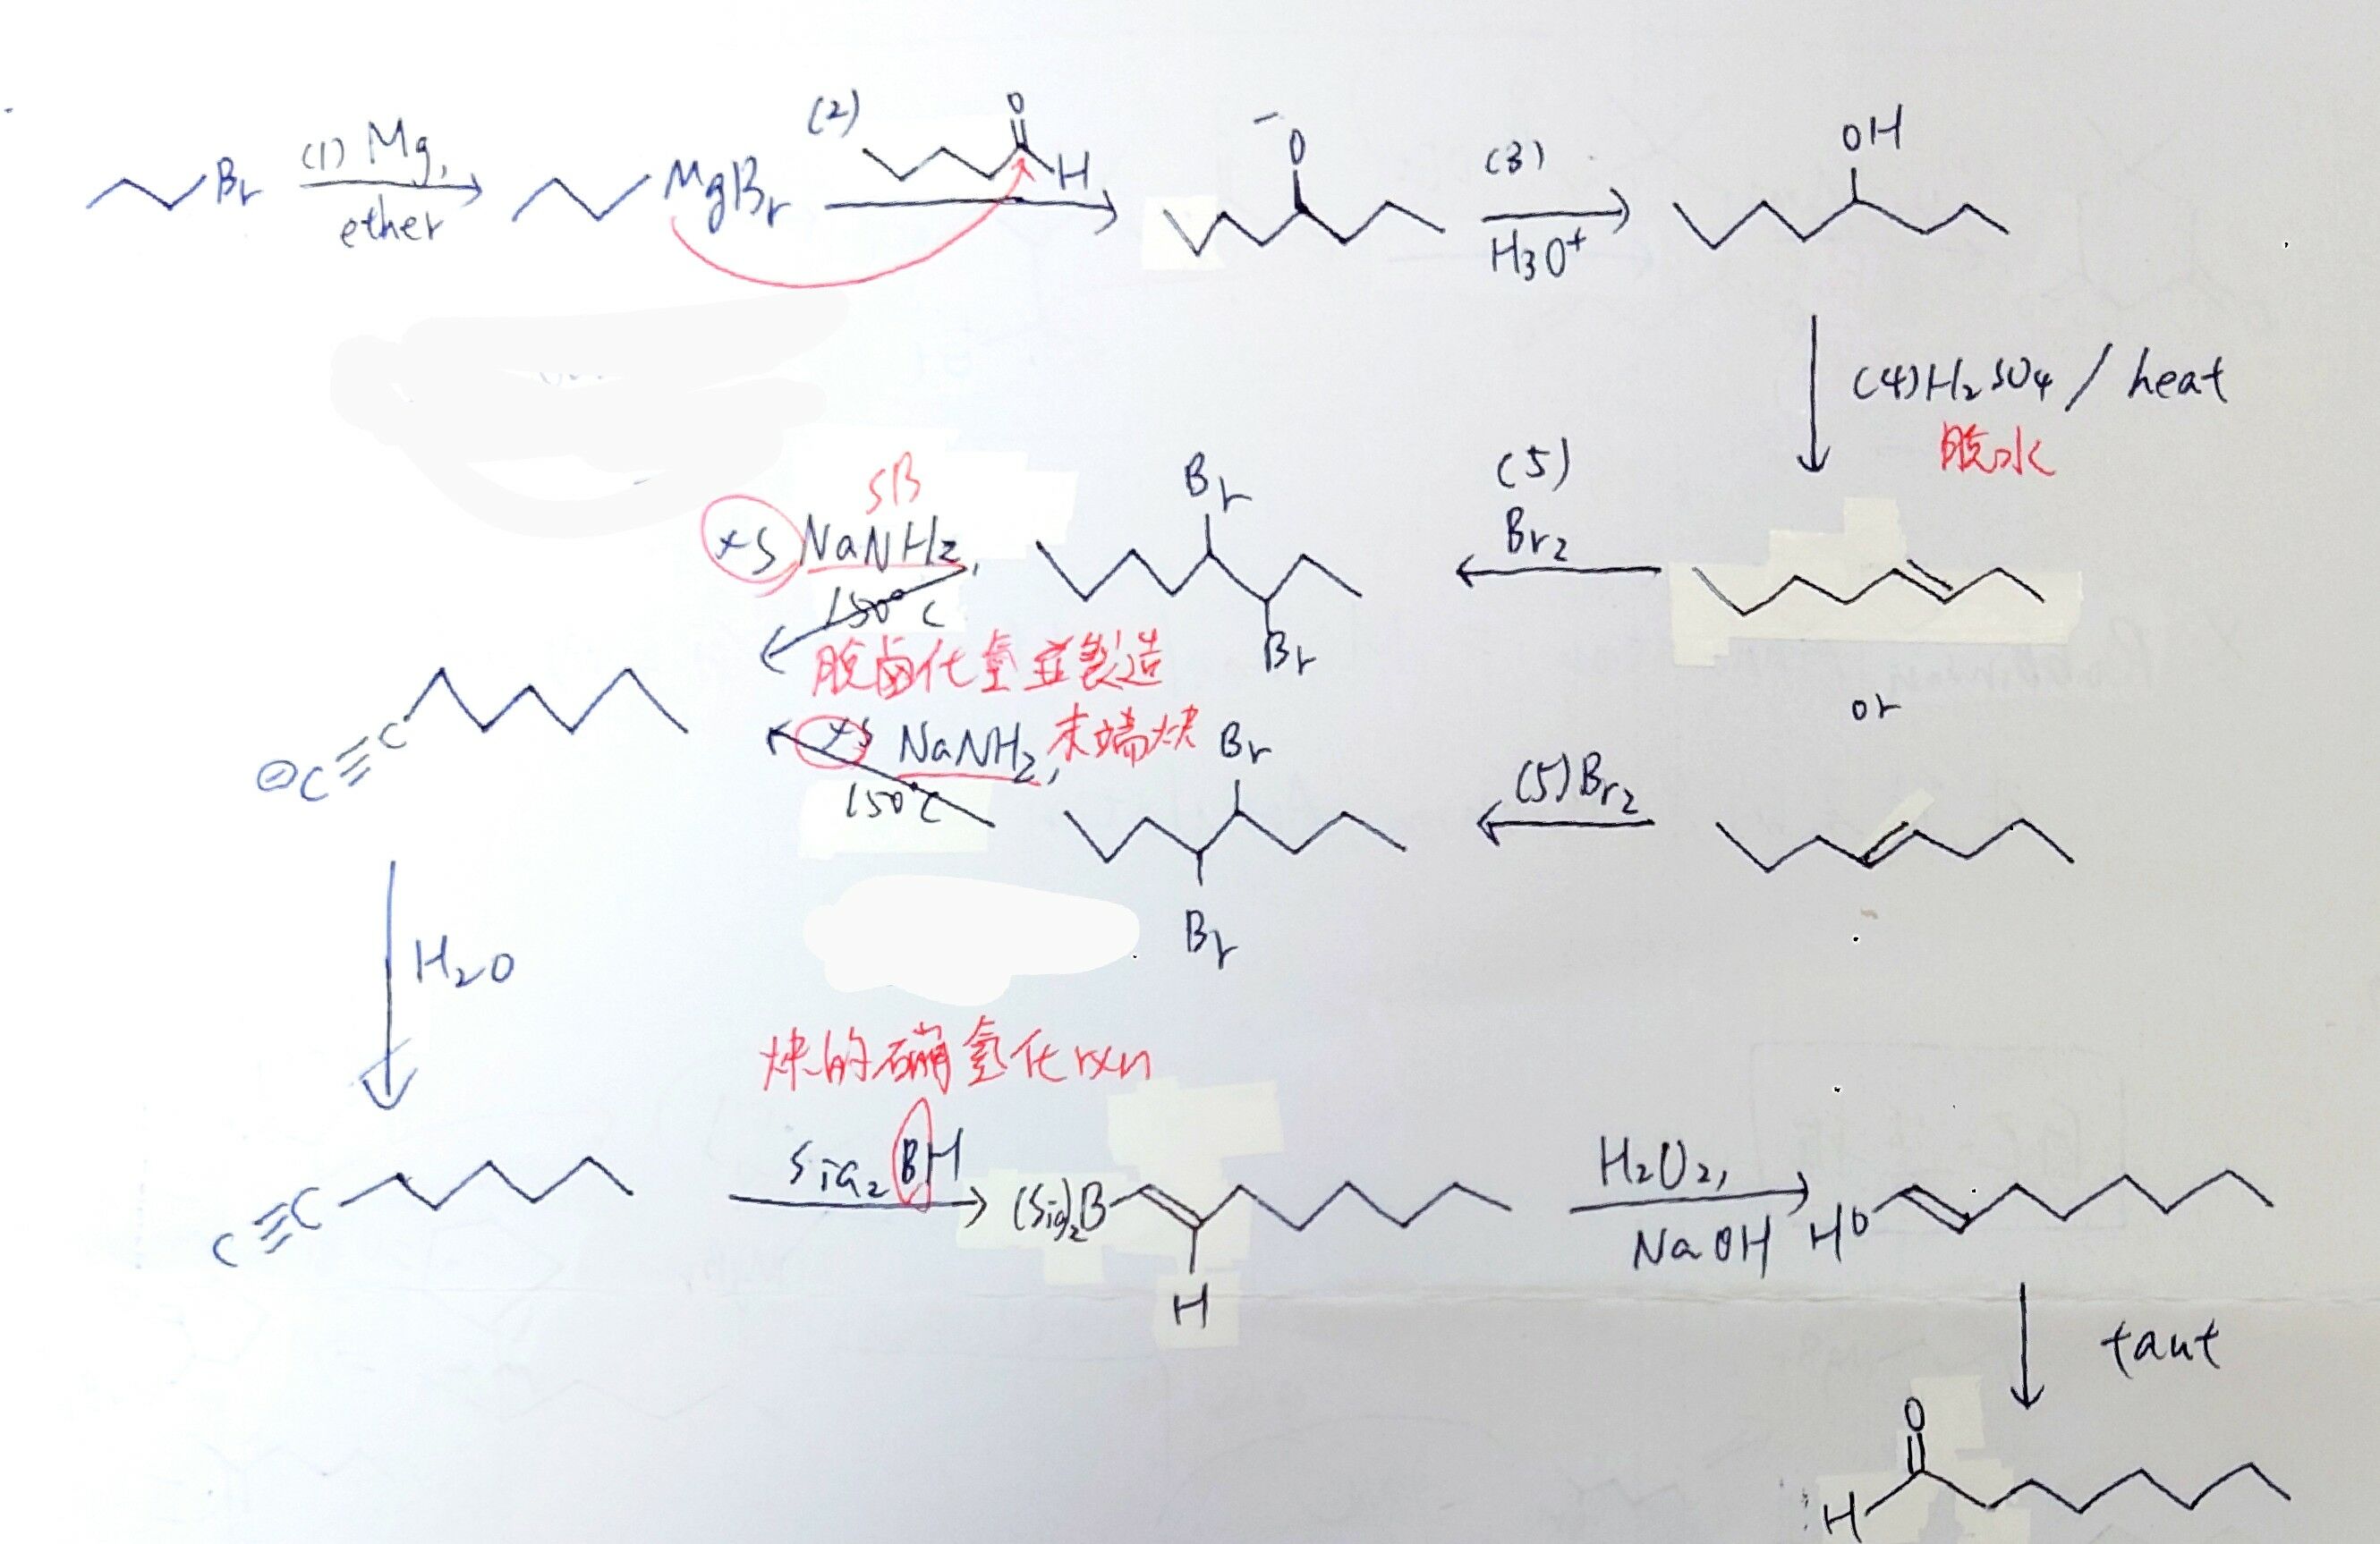 Br
(1) Mg,
ether
MgBr
(2)
O
H
-
O
(3)
H3O+
OH
(4) H2SO4 / heat
脫水
(5)
Br2
Br
Br
SB
xs NaNH2,
150°C
脫鹵化氫並製造
末端炔
xs NaNH2,
150°C
or
(5) Br2
Br
Br
⊖C≡C
H2O
炔的硼氫化rxn
C≡C
Sia2BH
(Sia)2B
H
H2O2,
NaOH
HO
taut
O
H